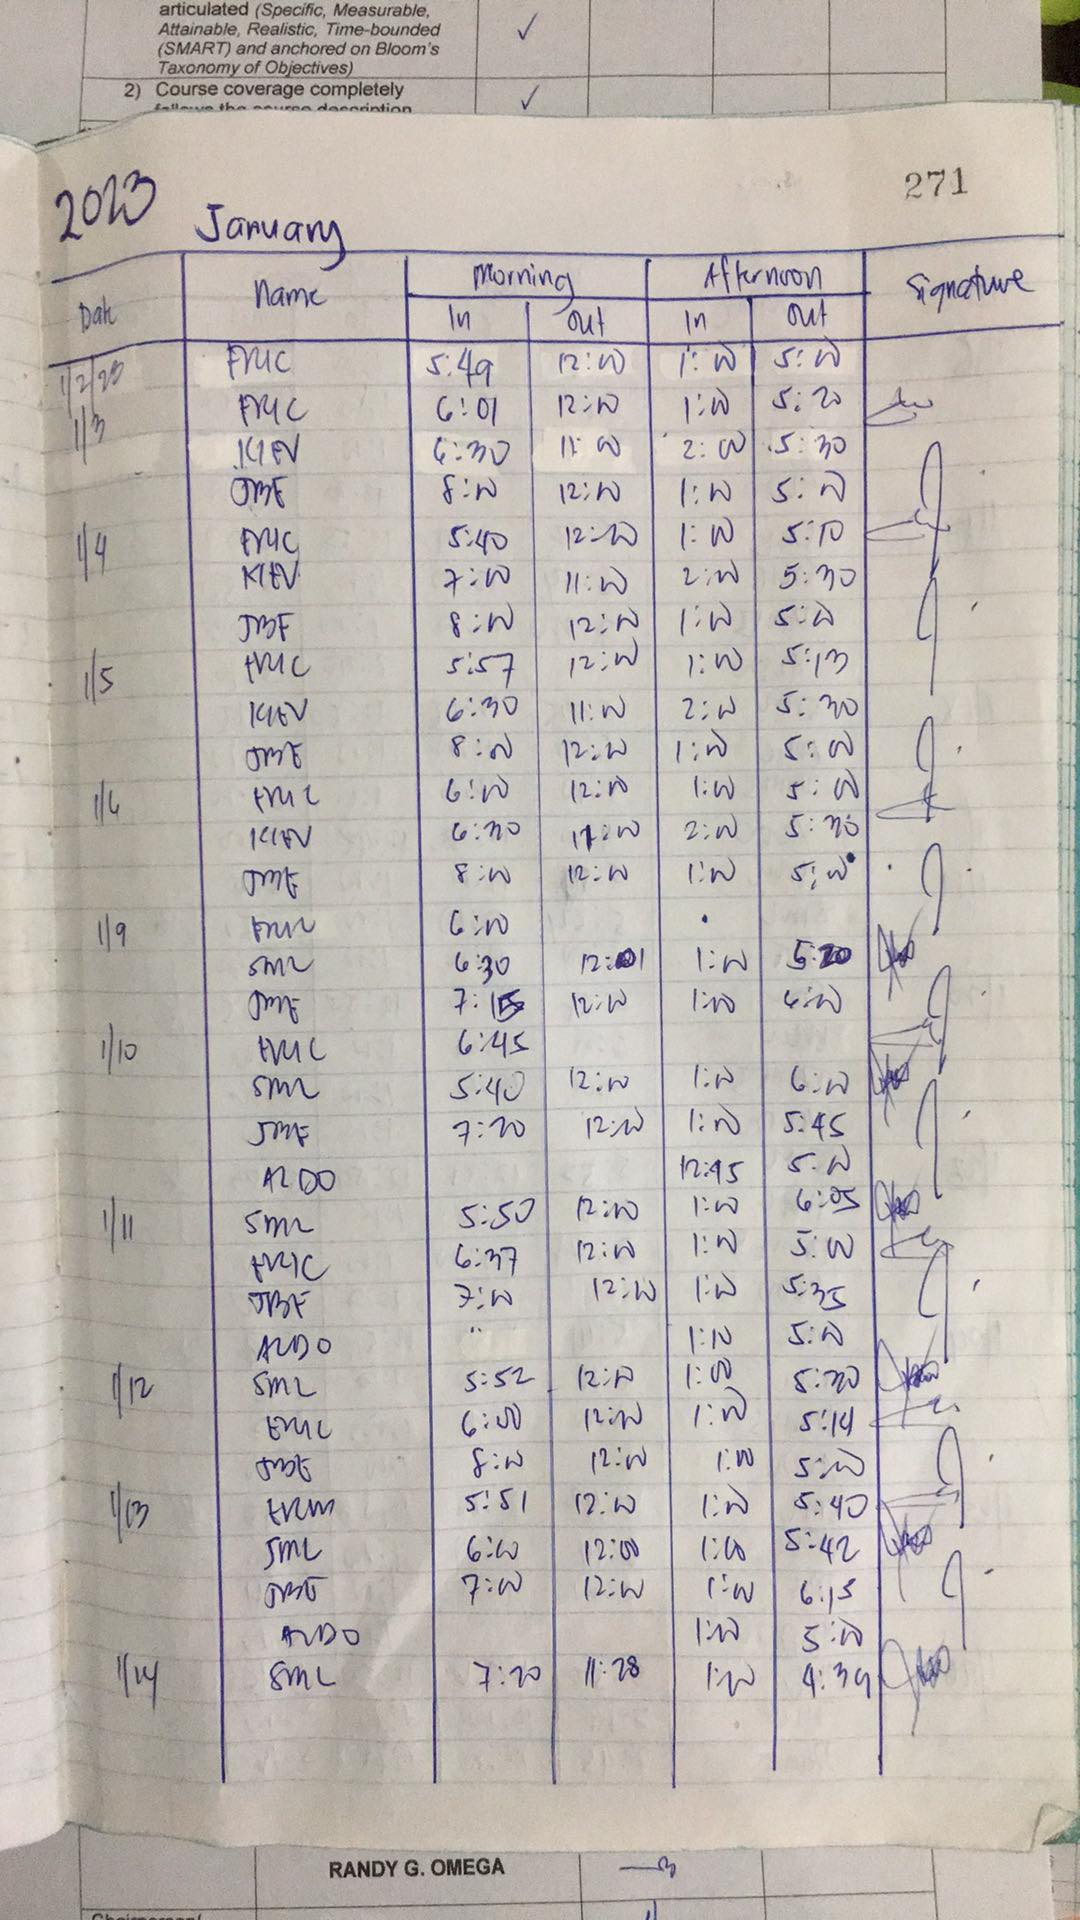 articulated (Specific, Measurable,
Attainable, Realistic, Time-bounded
(SMART) and anchored on Bloom's
Taxonomy of Objectives)
2) Course coverage completely
follows the course description
271
2023 January
Date Name Morning Afternoon Signature
In Out In Out
1/2/23 5:49 12:00 1:00 5:00
1/3 6:01 12:00 1:00 5:20
KIEV 6:30 11:00 2:00 5:30
JBE 8:00 12:00 1:00 5:00
1/4 5:40 12:00 1:00 5:10
KIEV 7:00 11:00 2:00 5:30
JBE 8:00 12:00 1:00 5:00
1/5 5:57 12:00 1:00 5:13
KIEV 6:30 11:00 2:00 5:30
JBE 8:00 12:00 1:00 5:00
1/6 6:00 12:00 1:00 5:00
KIEV 6:30 11:00 2:00 5:30
JBE 8:00 12:00 1:00 5:00
1/9 6:00
SML 6:30 12:01 1:00 5:20
JBE 7:15 12:00 1:00 6:00
1/10 6:45
SML 5:40 12:00 1:00 6:00
JBE 7:20 12:00 1:00 5:45
ALDO 12:45 5:00
1/11 SML 5:50 12:00 1:00 6:05
6:37 12:00 1:00 5:00
JBE 7:00 12:00 1:00 5:35
ALDO " 1:10 5:00
1/12 SML 5:52 12:00 1:00 5:30
6:00 12:00 1:00 5:14
JBE 8:00 12:00 1:00 5:00
1/13 5:51 12:00 1:00 5:40
SML 6:00 12:00 1:00 5:42
JBE 7:00 12:00 1:00 6:15
ALDO 1:00 5:00
1/14 SML 7:20 11:28 1:00 4:39
RANDY G. OMEGA 3
Chairperson/